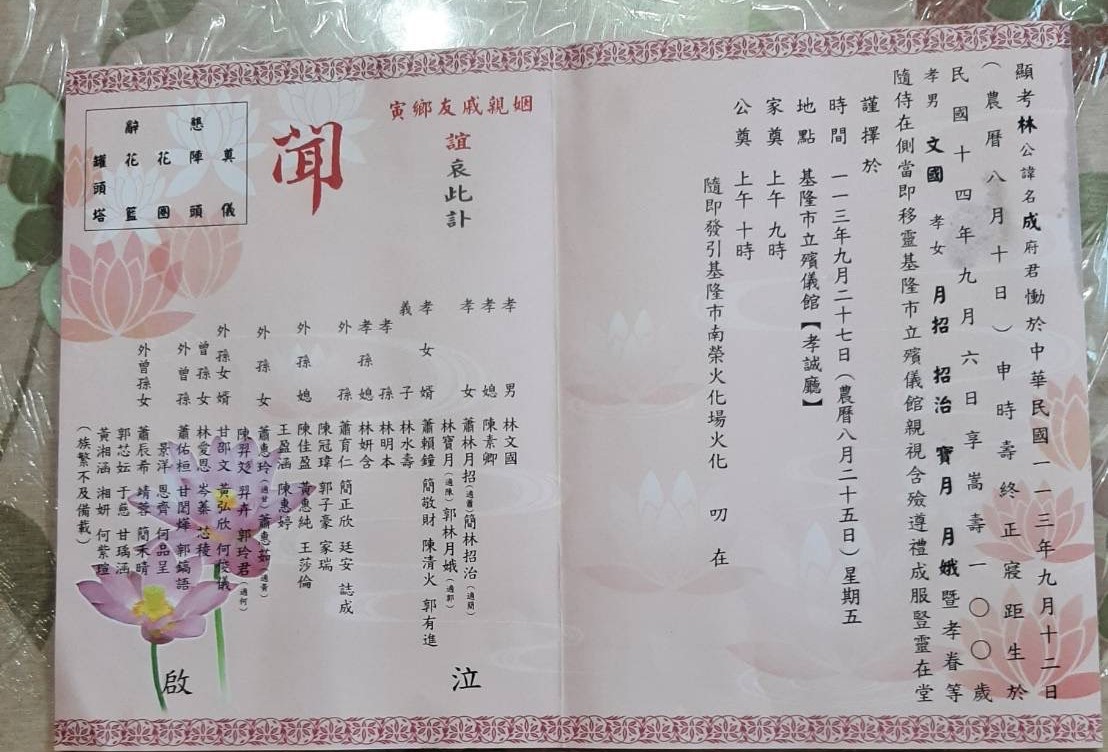 顯考林公諱名成府君慟於中華民國一一三年九月十二日
（農曆八月十日）申時壽終正寢距生於
民國十四年九月六日享嵩壽一〇〇歲
孝男 文國 孝女 月招 招治 寶月 月娥暨孝眷等
隨侍在側當即移靈基隆市立殯儀館親視含殮遵禮成服豎靈在堂
謹擇於
時間 一一三年九月二十七日（農曆八月二十五日）星期五
地點 基隆市立殯儀館【孝誠廳】
家奠 上午 九時
公奠 上午 十時
隨即發引基隆市南榮火化場火化 叨 在
姻親戚友鄉寅
誼哀此訃
聞
孝男 林文國
孝媳 陳素卿
孝女 蕭林月招（適蕭）簡林招治（適簡）
林寶月（適陳）郭林月娥（適郭）
孝女婿 蕭賴鐘 簡敬財 陳清火 郭有進
義子 林水壽
孝孫 林明本
孝孫媳 林妍含
外孫 蕭育仁 簡正欣 廷安 誌成
陳冠瑋 郭子豪 家瑞
外孫媳 陳佳盈 黃惠純 王莎倫
王盈涵 陳惠婷
外孫女 蕭惠玲（適甘）蕭惠茹（適黃）
陳羿彣 羿卉 郭玲君（適何）
外孫女婿 甘邵文 黃弘欣 何俊儀
曾孫女 林愛恩 岑蓁 芯稜
外曾孫 蕭佑桓 甘閎燁 郭鎬語
景洋 恩齊 何品呈
外曾孫女 蕭辰希 靖蓉 簡禾晴
郭芯妘 于蕙 甘瑀涵
黃湘涵 湘妍 何紫瑄
（族繁不及備載）
泣
啟
懇辭
奠儀
陣頭
花圈
花籃
罐頭塔